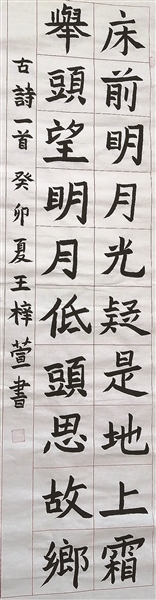 床前明月光疑是地上霜
舉頭望明月低頭思故鄉
古詩一首 癸卯夏王梓萱書